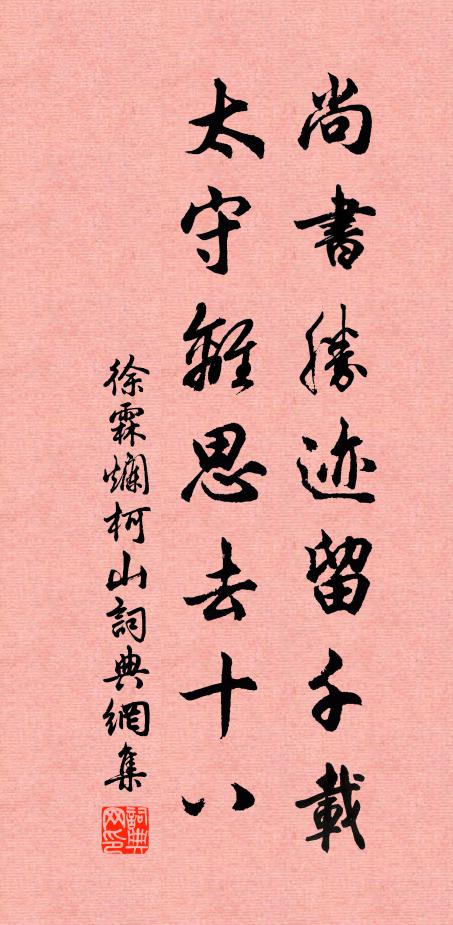 尚書勝迹留千載
太守離思去十八
徐霖爛柯山詞典網集
詞典网印